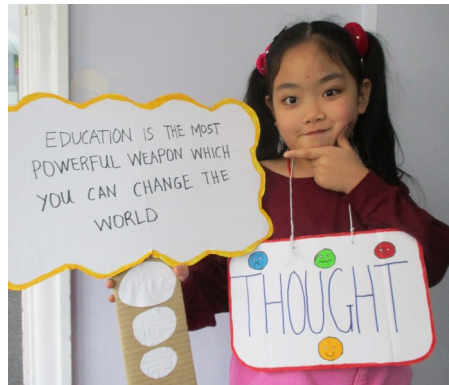 EDUCATION IS THE MOST
POWERFUL WEAPON WHICH
YOU CAN CHANGE THE
WORLD
THOUGHT